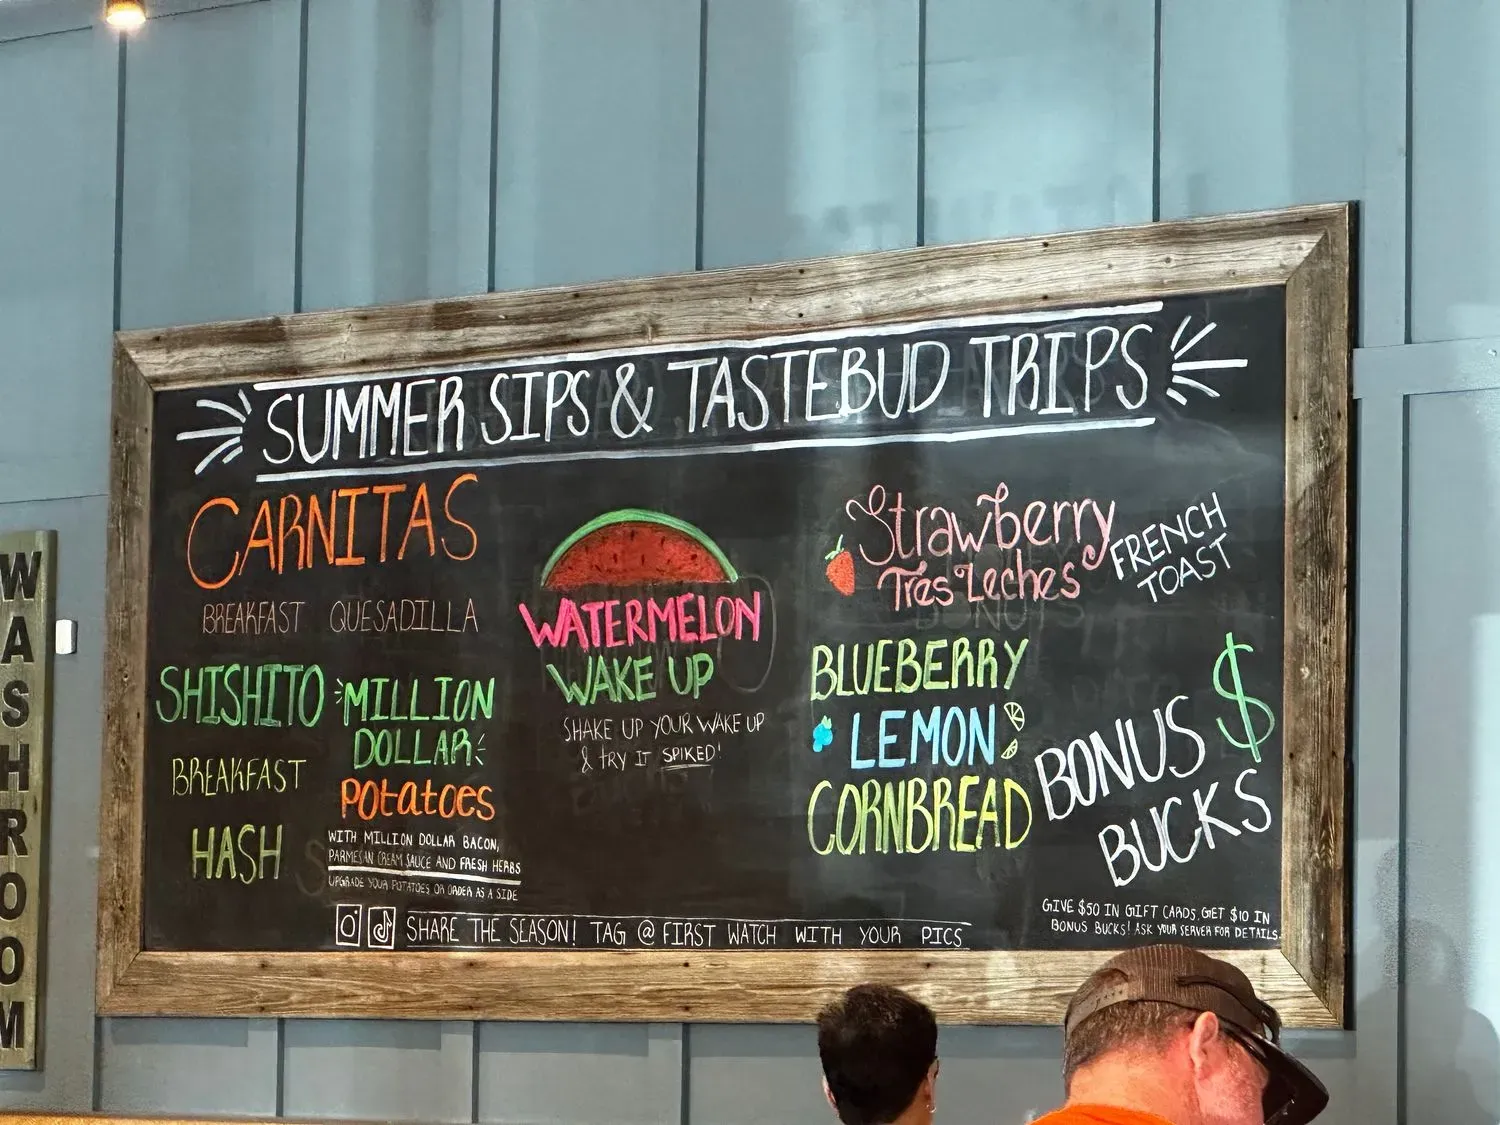 SUMMER SIPS & TASTEBUD TRIPS
CARNITAS
BREAKFAST QUESADILLA
SHISHITO
BREAKFAST
HASH
MILLION
DOLLAR
POtatoes
WITH MILLION DOLLAR BACON,
PARMESAN CREAM SAUCE AND FRESH HERBS
UPGRADE YOUR POTATOES OR ORDER AS A SIDE
WATERMELON
WAKE UP
SHAKE UP YOUR WAKE UP
& TRY IT SPIKED!
Strawberry
Tres Leches
FRENCH
TOAST
BLUEBERRY
LEMON
CORNBREAD
$
BONUS
BUCKS
GIVE $50 IN GIFT CARDS, GET $10 IN
BONUS BUCKS! ASK YOUR SERVER FOR DETAILS.
SHARE THE SEASON! TAG @ FIRST WATCH WITH YOUR PICS
WASHROOM